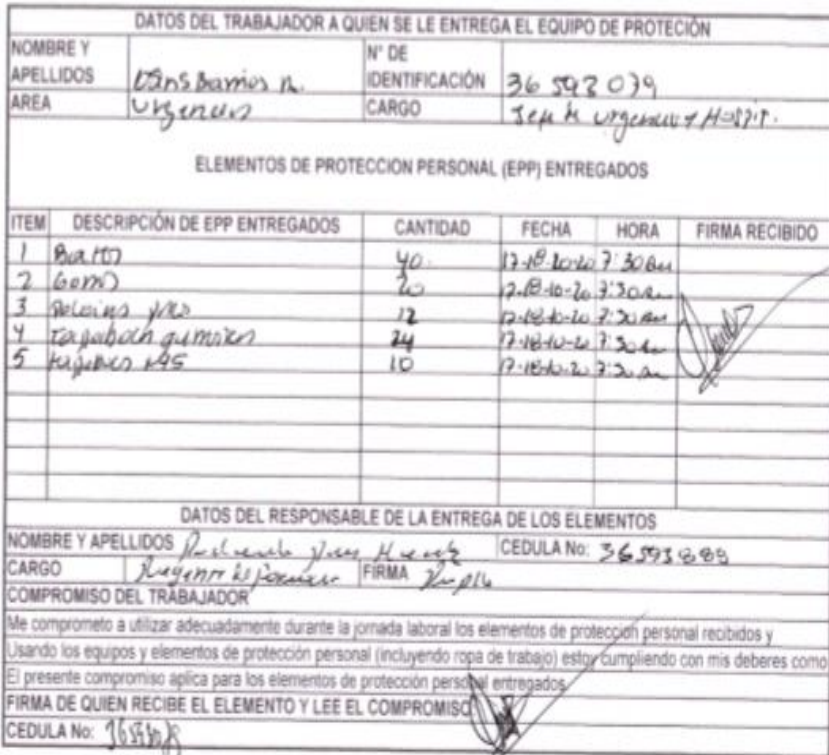 DATOS DEL TRABAJADOR A QUIEN SE LE ENTREGA EL EQUIPO DE PROTECIÓN
NOMBRE Y APELLIDOS Barrios R. N° DE IDENTIFICACIÓN 36 593 039
AREA Urgencias CARGO Jefe de urgencias y Hospit.
ELEMENTOS DE PROTECCION PERSONAL (EPP) ENTREGADOS
ITEM DESCRIPCIÓN DE EPP ENTREGADOS CANTIDAD FECHA HORA FIRMA RECIBIDO
1 Batas 40 17-18-10-20 7:30 am
2 Gorros 20 17-18-10-20 7:30 am
3 12 17-18-10-20 7:30 am
4 Tapabocas 24 17-18-10-20 7:30 am
5 N95 10 17-18-10-20 7:30 am
DATOS DEL RESPONSABLE DE LA ENTREGA DE LOS ELEMENTOS
NOMBRE Y APELLIDOS CEDULA No: 36593888
CARGO FIRMA
COMPROMISO DEL TRABAJADOR
Me comprometo a utilizar adecuadamente durante la jornada laboral los elementos de protección personal recibidos y
Usando los equipos y elementos de protección personal (incluyendo ropa de trabajo) estoy cumpliendo con mis deberes como
El presente compromiso aplica para los elementos de protección personal entregados
FIRMA DE QUIEN RECIBE EL ELEMENTO Y LEE EL COMPROMISO
CEDULA No: